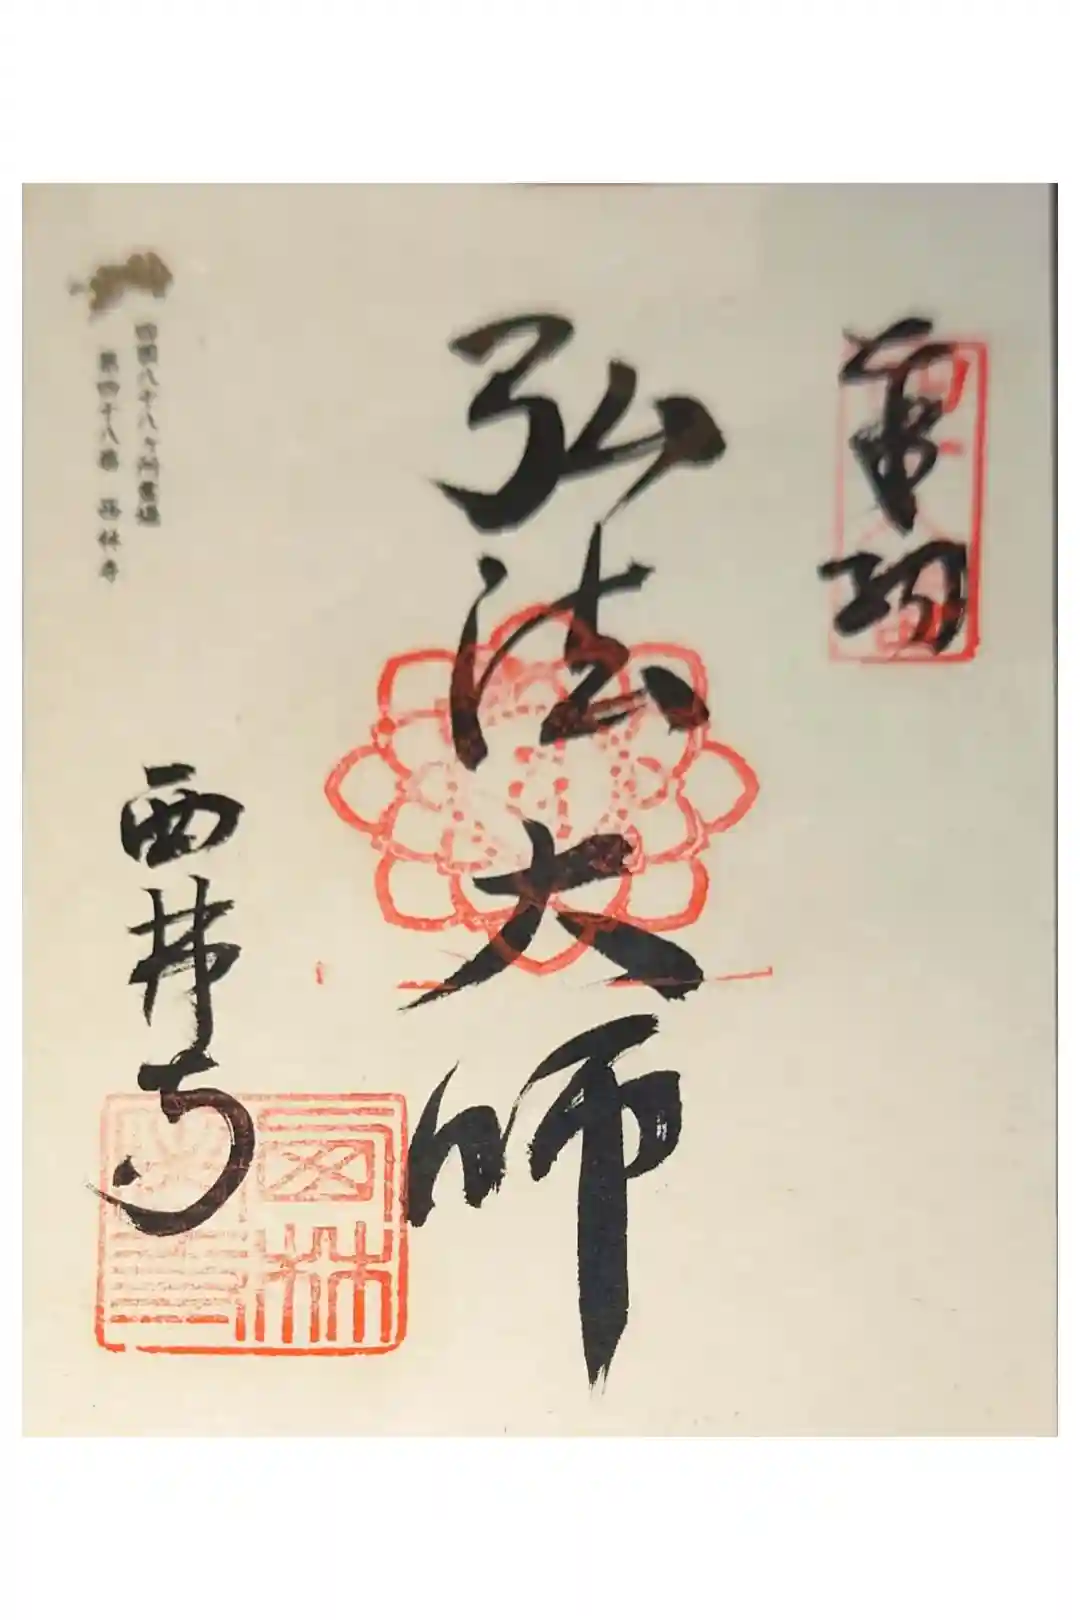 奉拝
弘法大師
西林寺
四国八十八ヶ所霊場
第四十八番 西林寺